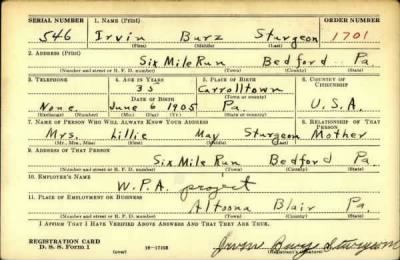 SERIAL NUMBER 1. NAME (Print) ORDER NUMBER
546 Irvin Burz Sturgeon 1701
(First) (Middle) (Last)
2. ADDRESS (Print)
Six Mile Run Bedford Pa.
(Number and street or R. F. D. number) (Town) (County) (State)
3. TELEPHONE 4. AGE IN YEARS 5. PLACE OF BIRTH 6. COUNTRY OF CITIZENSHIP
35 Carrolltown
DATE OF BIRTH (Town or county)
None June 6 1905 Pa U.S.A.
(Exchange) (Number) (Mo.) (Day) (Yr.) (State or country)
7. NAME OF PERSON WHO WILL ALWAYS KNOW YOUR ADDRESS 8. RELATIONSHIP OF THAT PERSON
Mrs. Lillie May Sturgeon Mother
(Mr., Mrs., Miss) (First) (Middle) (Last)
9. ADDRESS OF THAT PERSON
Six Mile Run Bedford Pa.
(Number and street or R. F. D. number) (Town) (County) (State)
10. EMPLOYER'S NAME
W.P.A. project
11. PLACE OF EMPLOYMENT OR BUSINESS
Altoona Blair Pa.
(Number and street or R. F. D. number) (Town) (County) (State)
I AFFIRM THAT I HAVE VERIFIED ABOVE ANSWERS AND THAT THEY ARE TRUE.
REGISTRATION CARD
D. S. S. Form 1 (over) 16-17105 Irvin Burz Sturgeon
(Registrant's signature)